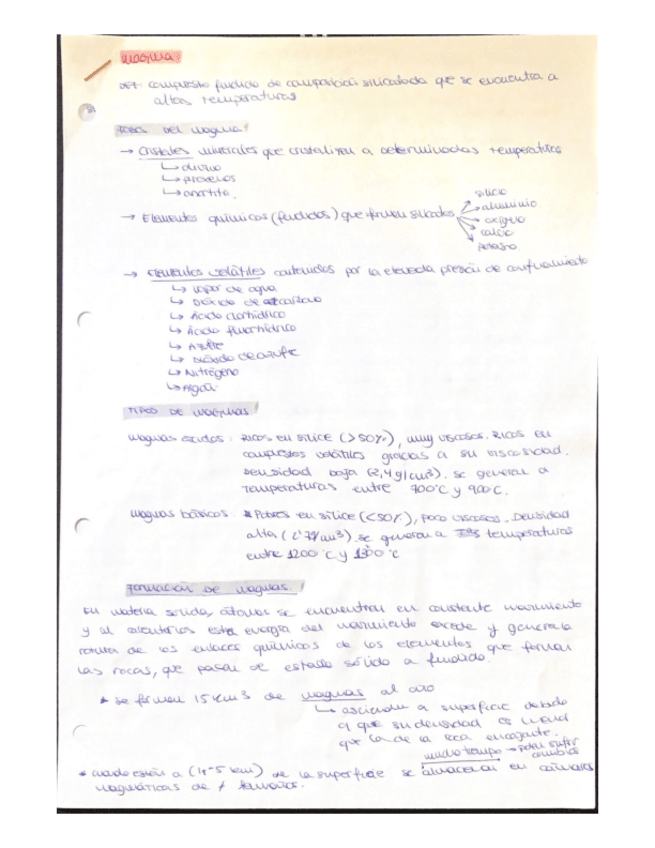 MAGMA:
DEF: compuesto fundido de composición silicatada que se encuentra a
altas temperaturas
FASES DEL MAGMA:
→ Cristales minerales que cristalizan a determinadas temperaturas
↳ olivino
↳ piroxenos
↳ anortita.
→ Elementos químicos (fundidos) que forman silicatos
silicio
aluminio
oxígeno
calcio
potasio
→ Elementos volátiles contenidos por la elevada presión de confinamiento
↳ vapor de agua
↳ Dióxido de carbono
↳ Ácido clorhídrico
↳ Ácido fluorhídrico
↳ Azufre
↳ Dióxido de azufre
↳ Nitrógeno
↳ Argón
TIPOS DE MAGMAS
Magmas ácidos: Ricos en sílice (>50%), muy viscosos. Ricos en
compuestos volátiles gracias a su viscosidad.
Densidad baja (2,4 g/cm³). se generan a
temperaturas entre 700°C y 900°C.
Magmas básicos: Pobres en sílice (<50%), poco viscosos. Densidad
alta (2'7g/cm³) se generan a temperaturas
entre 1200°C y 1300°C
FORMACIÓN DE MAGMAS.
En materia sólida, átomos se encuentran en constante movimiento
y al calentarlos esta energía del movimiento excede y genera la
rotura de los enlaces químicos de los elementos que forman
las rocas, que pasan de estado sólido a fundido.
* se forman 15 km3 de magmas al año
↳ ascienden a superficie debido
a que su densidad es menor
que la de la roca encajante.
mucho tiempo → pueden sufrir
cambios
* cuando están a (1-5 km) de la superficie se almacenan en cámaras
magmáticas de ≠ tamaños.